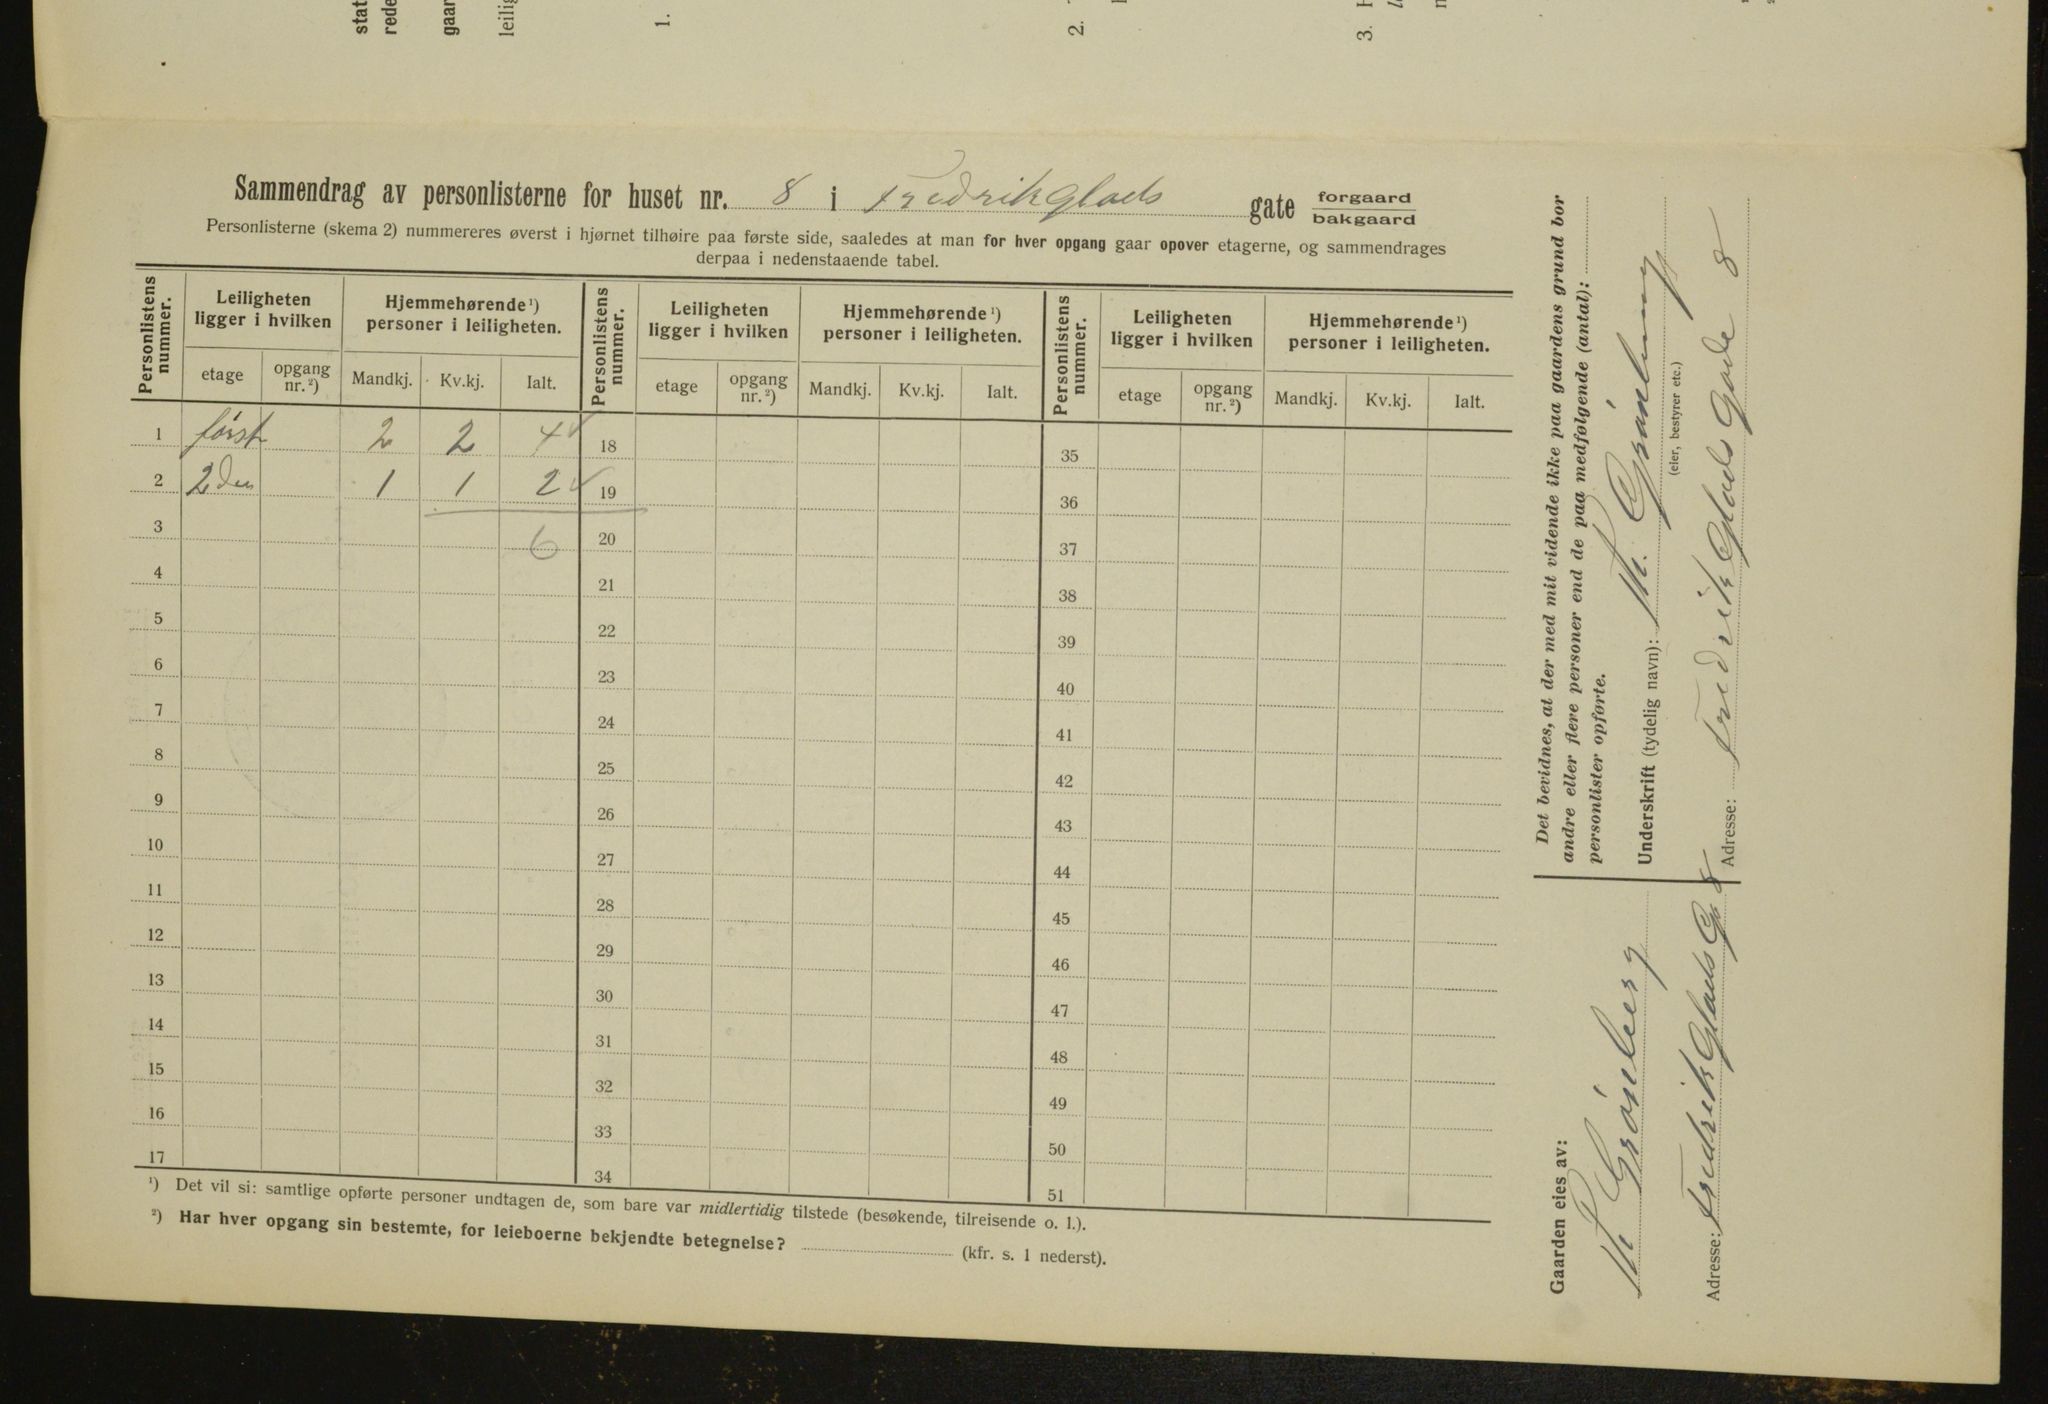 stat
rede
gaar
leilig
1.
2.
3.
Sammendrag av personlisterne for huset nr. 8 i Fredrik Glads gate forgaard
bakgaard
Personlisterne (skema 2) nummereres øverst i hjørnet tilhøire paa første side, saaledes at man for hver opgang gaar opover etagerne, og sammendrages
derpaa i nedenstaaende tabel.
Personlistens nummer. Leiligheten ligger i hvilken Hjemmehørende ¹) personer i leiligheten. Personlistens nummer. Leiligheten ligger i hvilken Hjemmehørende ¹) personer i leiligheten. Personlistens nummer. Leiligheten ligger i hvilken Hjemmehørende ¹) personer i leiligheten.
etage opgang nr. ²) Mandkj. Kv.kj. Ialt. etage opgang nr. ²) Mandkj. Kv.kj. Ialt. etage opgang nr. ²) Mandkj. Kv.kj. Ialt.
1 først 2 2 4 ✓ 18 35
2 2den 1 1 2 ✓ 19 36
3 6 20 37
4 21 38
5 22 39
6 23 40
7 24 41
8 25 42
9 26 43
10 27 44
11 28 45
12 29 46
13 30 47
14 31 48
15 32 49
16 33 50
17 34 51
¹) Det vil si: samtlige opførte personer undtagen de, som bare var midlertidig tilstede (besøkende, tilreisende o. l.).
²) Har hver opgang sin bestemte, for leieboerne bekjendte betegnelse? (kfr. s. 1 nederst).
Det bevidnes, at der med mit vidende ikke paa gaardens grund bor
andre eller flere personer end de paa medfølgende (antal):
personlister opførte.
Underskrift (tydelig navn): Grönberg
(eier, bestyrer etc.)
Adresse: Fredrik Glads Gade 8
Gaarden eies av:
Grönberg
Adresse: Fredrik Glads G 8